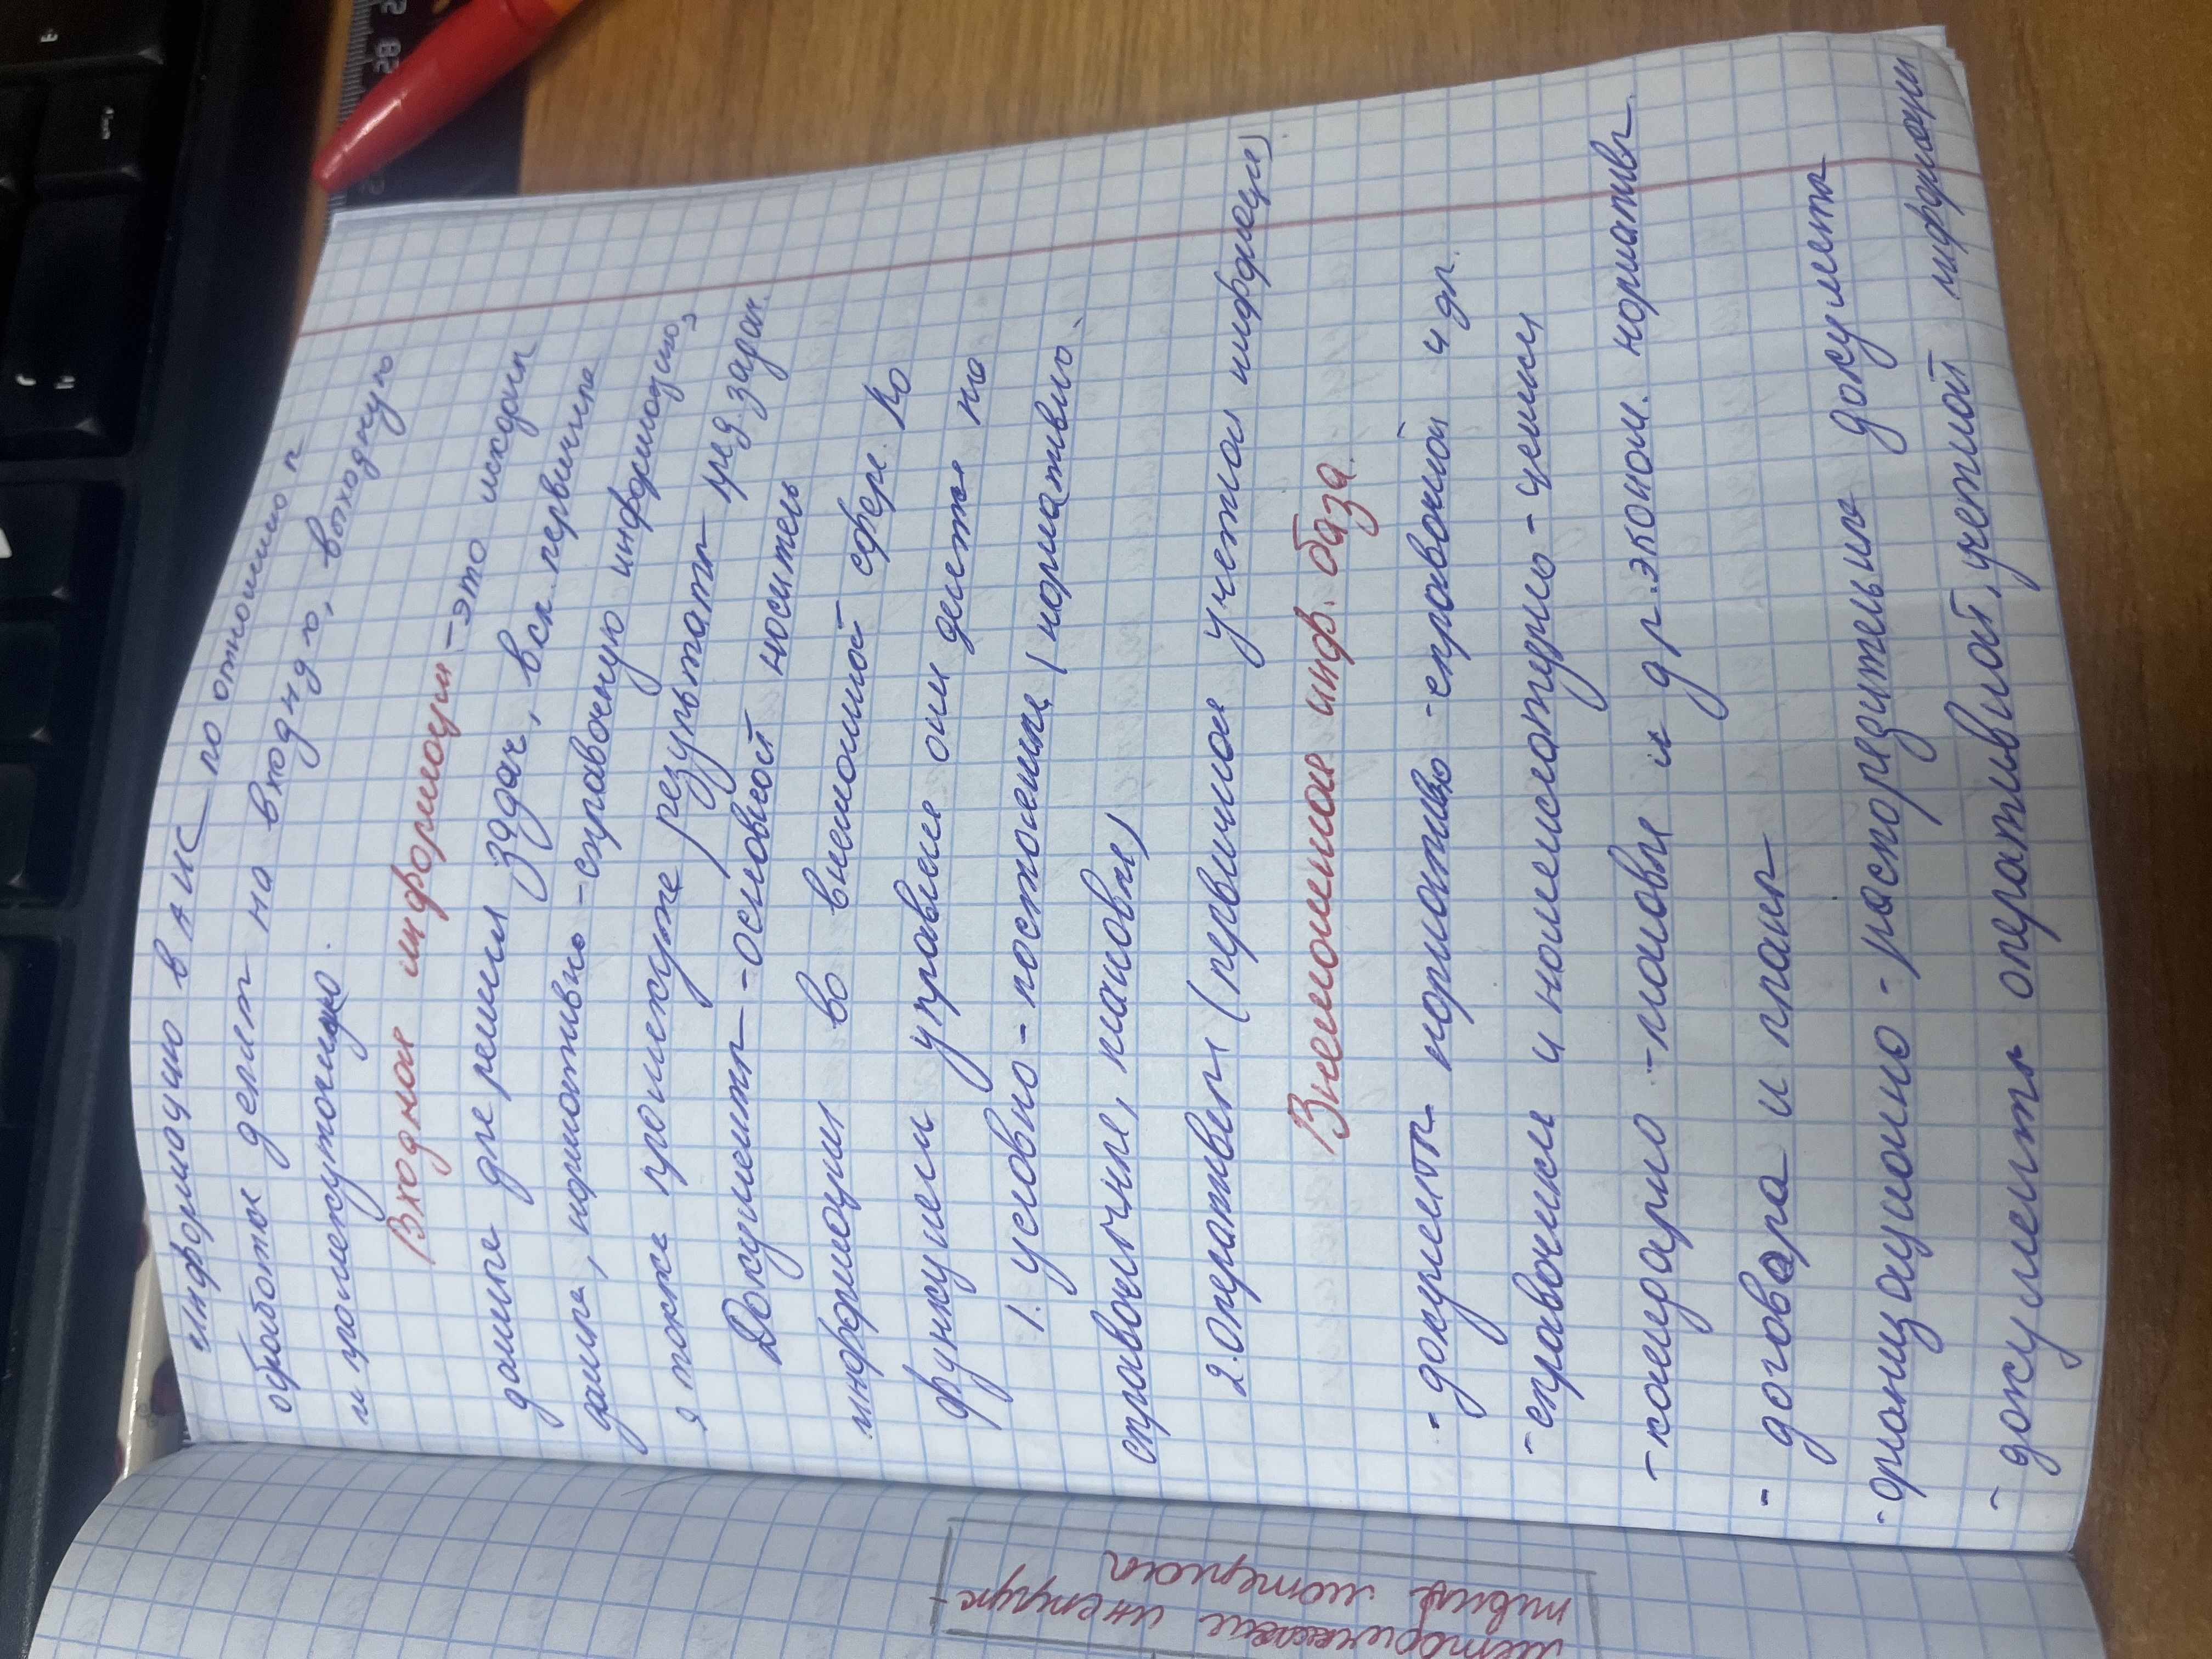 информацию в АИС по отношению к
обработке делят на входную, выходную
и промежуточную.
Входная информация - это исходные
данные для решения задач, вкл. первичные
данные, нормативно-справочную информацию,
а также промежуточные результаты пред. задач.
Документы - основной носитель
информации во внемашинной сфере. По
функциям управления они делятся на
1. условно-постоянные (нормативно-
справочные, плановые)
2. Оперативные (первичная учетная информация)
Внемашинная инф. база.
- документы нормативно-справочной и др.
- справочники и номенклатурно-ценники
- календарно-плановые и др. эконом. нормативы.
- договора и планы
- организационно-распорядительные документы
- документы оперативной, учетной информации
методические инструк-
тивные материал